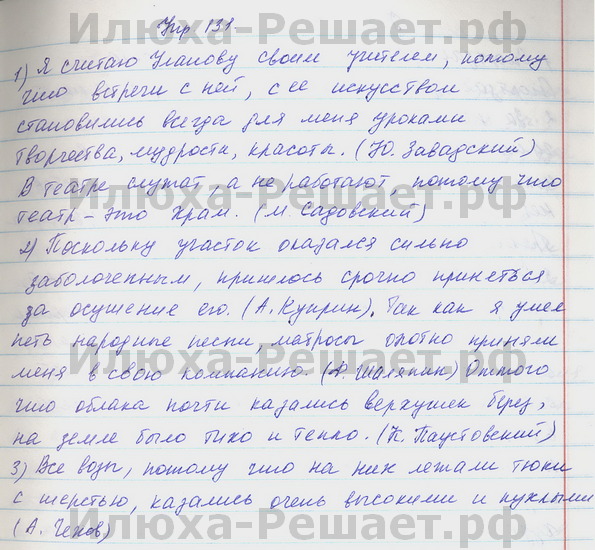 Илюха-Решает.рф
Упр 131
1) Я считаю Уланову своим учителем, потому
что встречи с ней, с ее искусством
становились всегда для меня уроками
творчества, мудрости, красоты. (Ю. Завадский)
Илюха-Решает.рф
В театре служат, а не работают, потому что
театр – это храм. (М. Садовский)
2) Поскольку участок оказался сильно
заболоченным, пришлось срочно приняться
за осушение его. (А. Куприн). Так как я умел
петь народные песни, матросы охотно приняли
Илюха-Решает.рф
меня в свою компанию. (Ф. Шаляпин) Оттого
что облака почти казались верхушек берез,
на земле было тихо и тепло. (К. Паустовский)
3) Все возы, потому что на них лежали тюки
с шерстью, казались очень высокими и пухлыми
(А. Чехов)
Илюха-Решает.рф